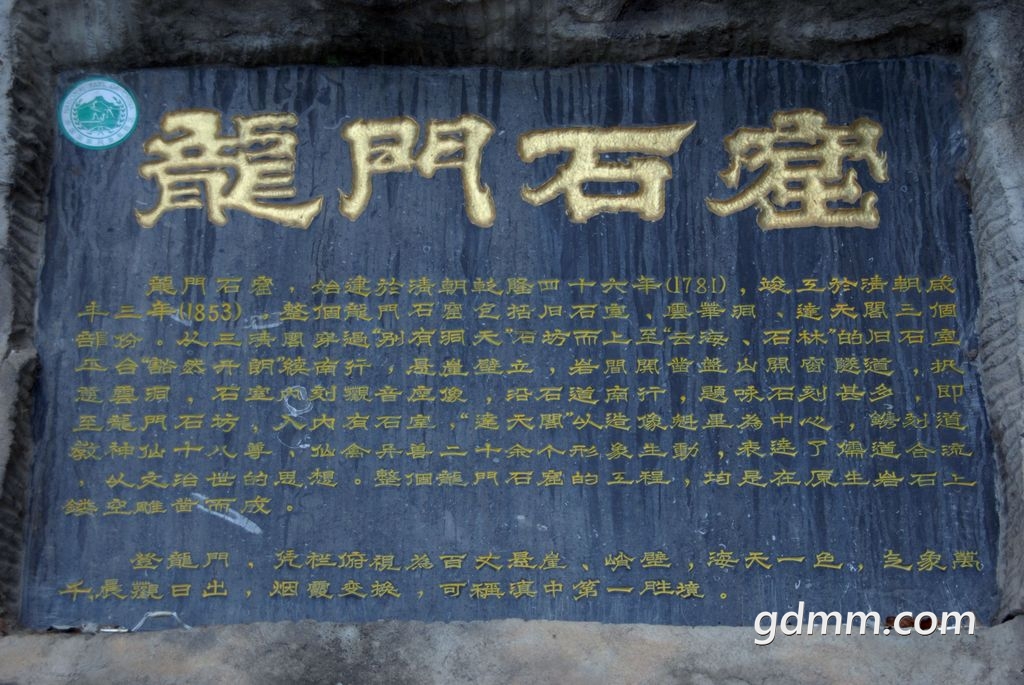 龍門石窟
龍門石窟，始建於清朝乾隆四十六年(1781)，竣工於清朝咸
年三年(1853)，整個龍門石窟包括旧石室、雲華洞、達天閣三個
部份。从三清閣穿過“別有洞天”石坊而上至“云海、石林”的旧石室
平台“豁然开朗”續南行，悬崖壁立，岩間開凿盤山開窗隧道，抵
雲洞，石室内刻觀音座像，沿石道南行，題咏石刻甚多，即
至龍門石坊，入内有石室，“達天閣”以造像魁星為中心，鐫刻道
教神仙十八尊、仙禽异兽二十余个形象生動，表達了儒道合流
，从文治世的思想。整個龍門石窟的工程，均是在原生岩石上
鏤空雕凿而成。
登龍門，凭栏俯視為百丈悬崖、峭壁，海天一色，气象萬
千，晨觀日出，烟霞变换，可稱滇中第一胜境。
gdmm.com